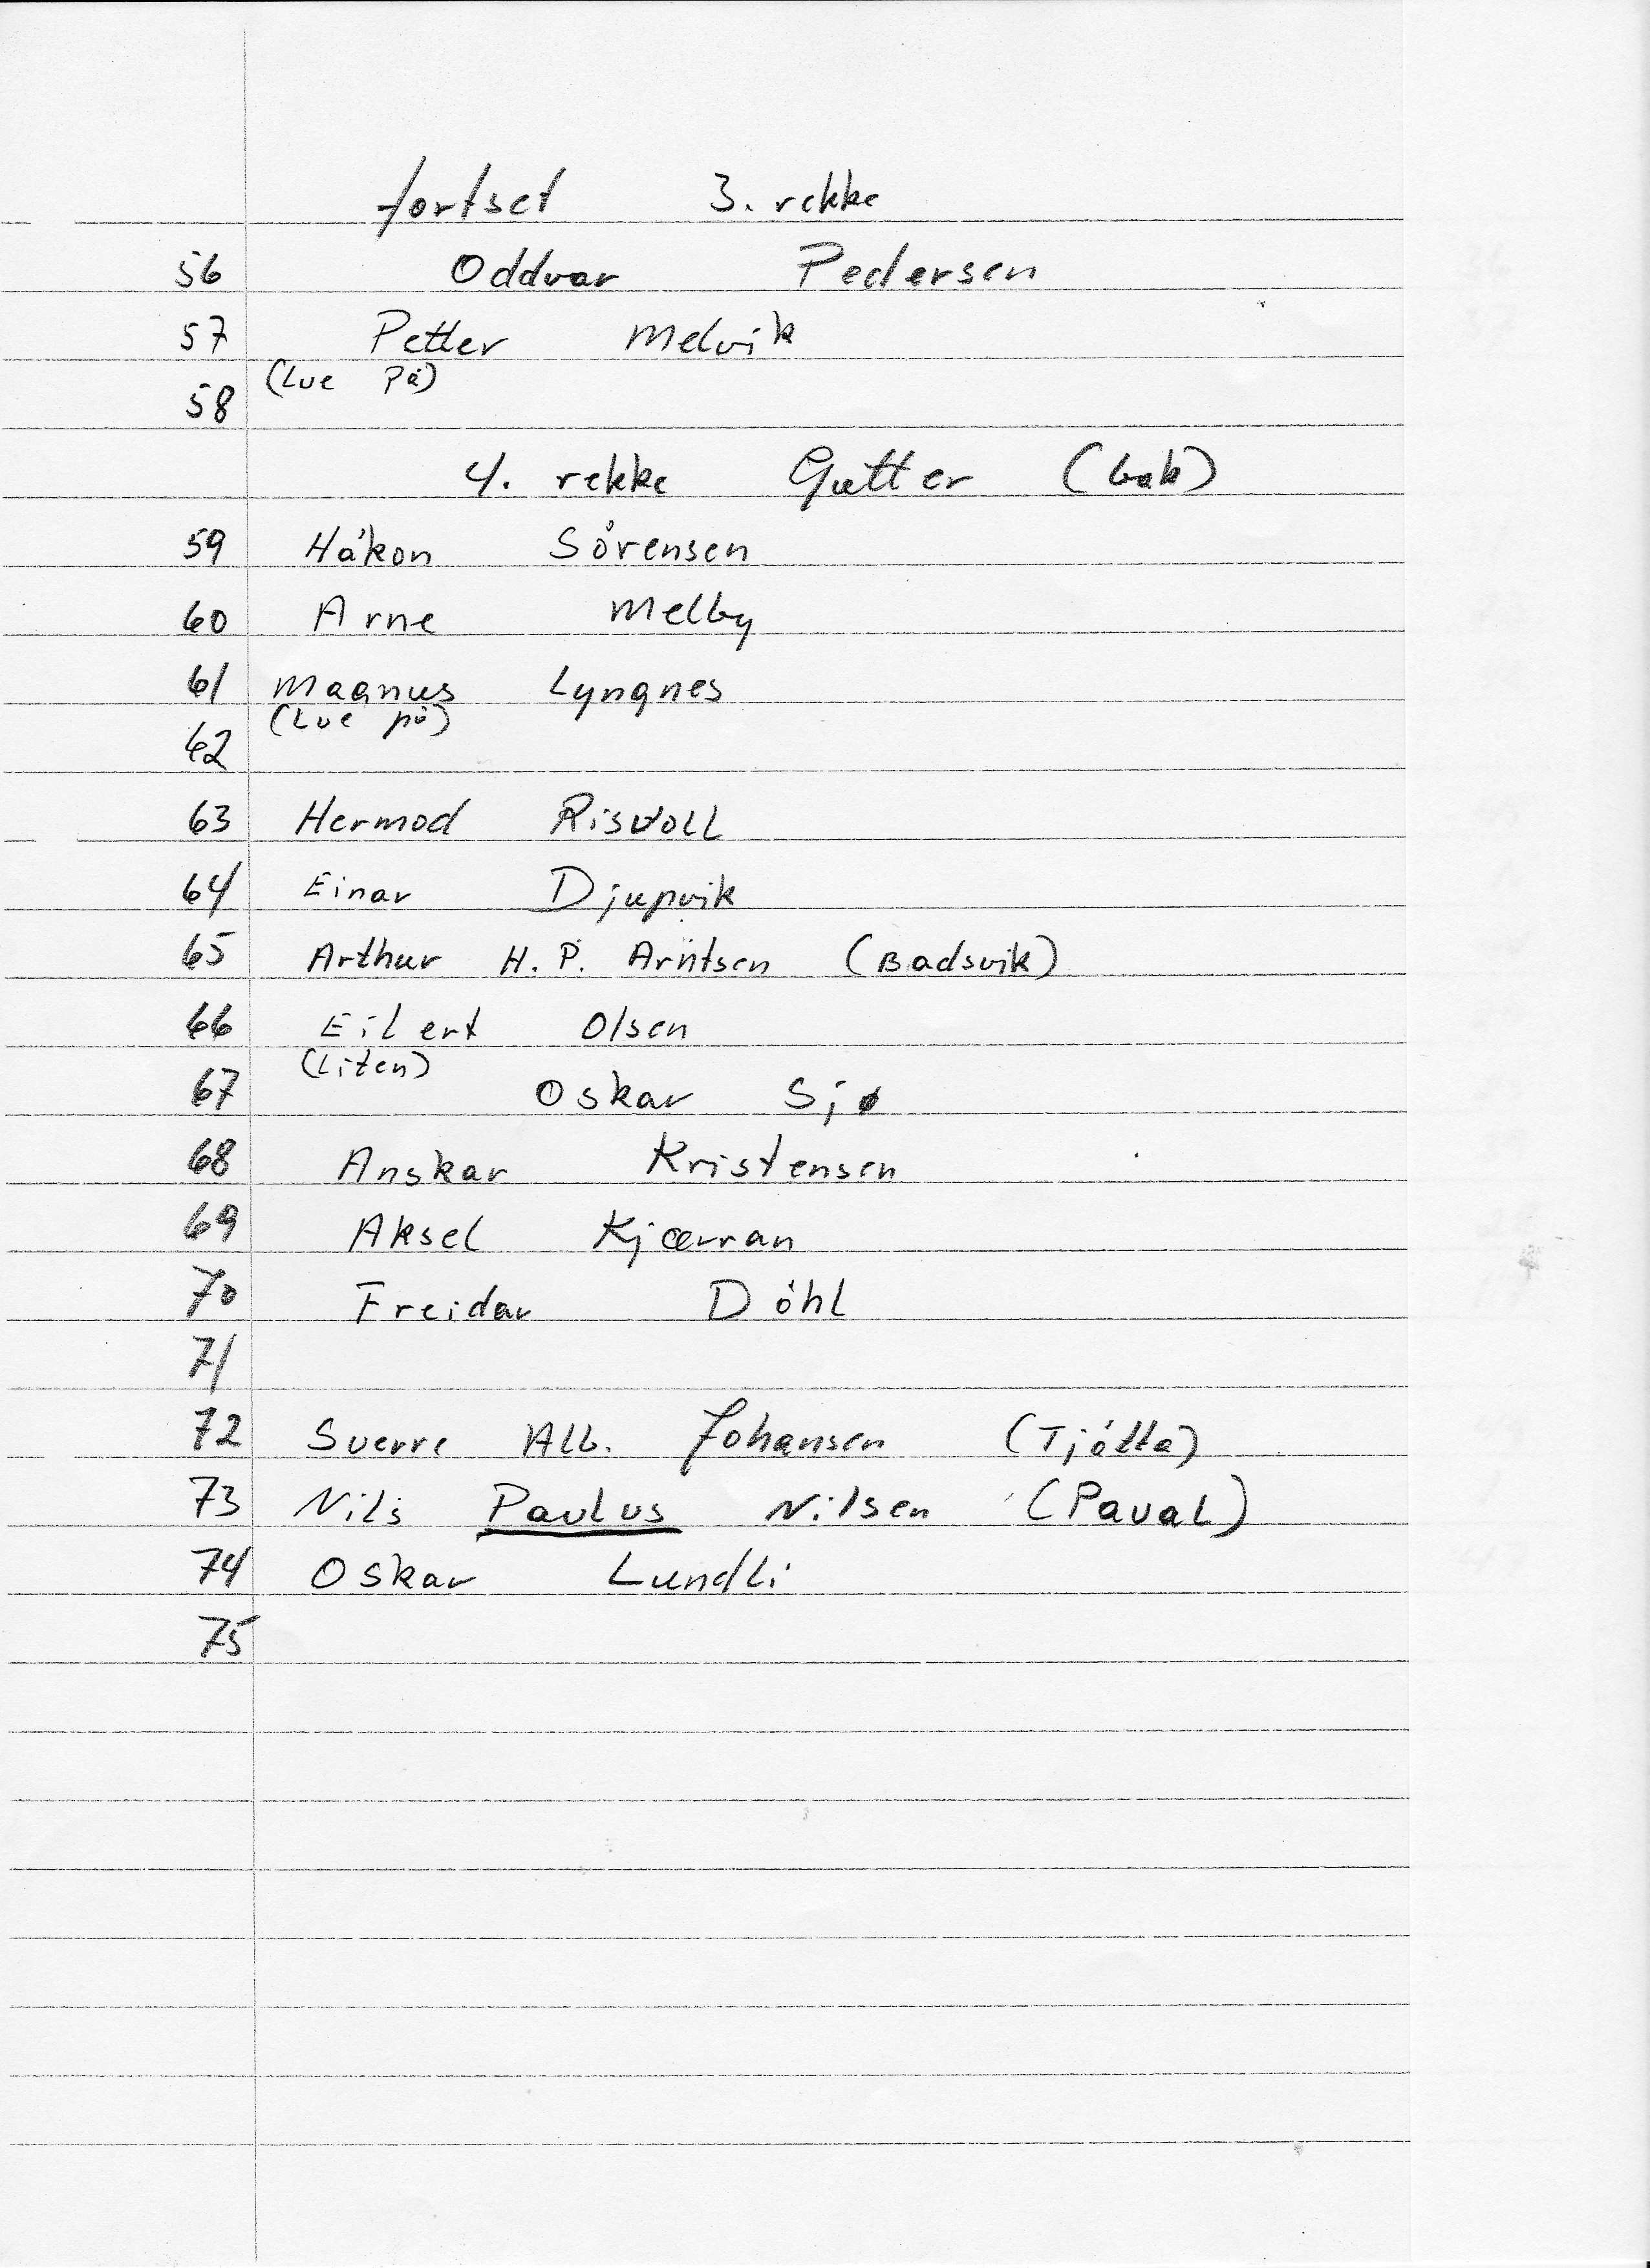 fortset 3. rekke
56 Oddvar Pedersen
57 Petter Melvik
58 (Lue På)
4. rekke Gutter (bak)
59 Håkon Sörensen
60 Arne Melby
61 Magnus Lyngnes
62 (Lue på)
63 Hermod Risvoll
64 Einar Djupvik
65 Arthur H. P. Arntsen (Badsvik)
66 Eilert Olsen
(Liten)
67 Oskar Sjø
68 Anskar Kristensen
69 Aksel Kjærran
70 Freidar Döhl
71
72 Sverre Alb. Johansen (Tjötta)
73 Nils Paulus Nilsen (Paval)
74 Oskar Lundli
75